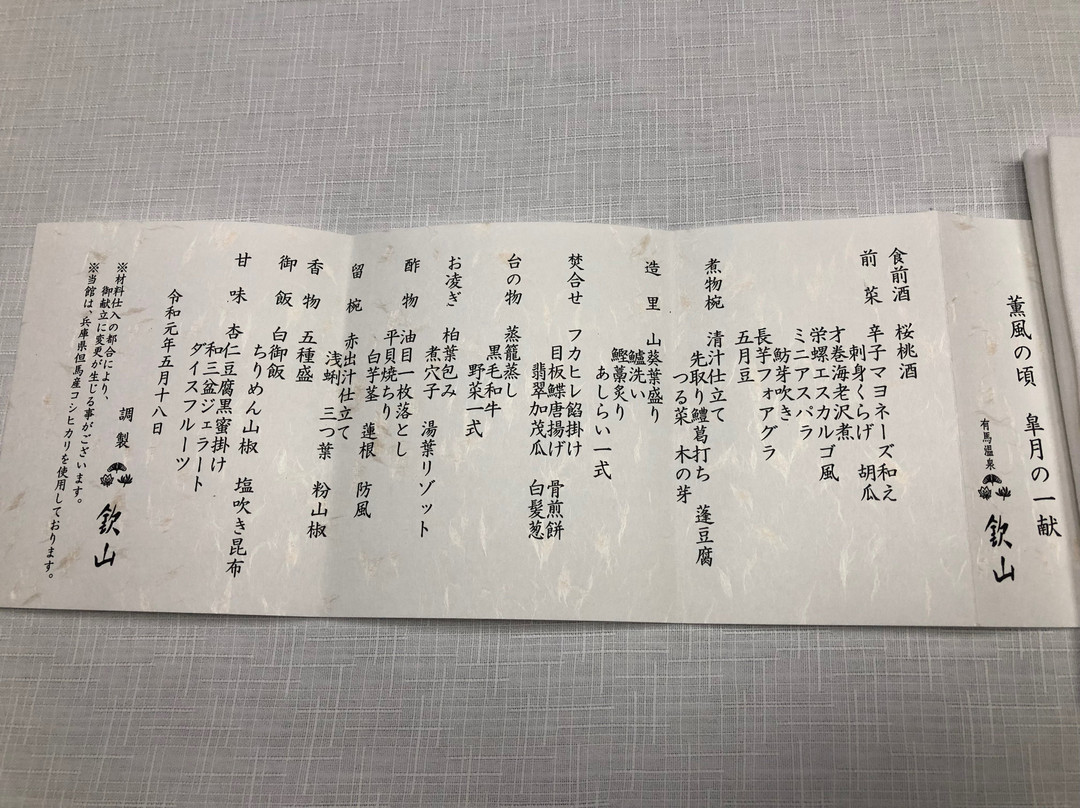 薫風の頃　皐月の一献
有馬温泉　欽山
食前酒　桜桃酒
前菜　辛子マヨネーズ和え
刺身くらげ　胡瓜
才巻海老沢煮
栄螺エスカルゴ風
ミニアスパラ
魴芽吹き
長芋フォアグラ
五月豆
煮物椀　清汁仕立て　蓬豆腐
先取り鱧葛打ち
つる菜　木の芽
造里　山葵葉盛り
鱸洗い
鰹藁炙り
あしらい一式
焚合せ　フカヒレ餡掛け
目板鰈唐揚げ　骨煎餅
翡翠加茂瓜　白髪葱
台の物　蒸籠蒸し
黒毛和牛
野菜一式
お凌ぎ　柏葉包み
煮穴子　湯葉リゾット
酢物　油目一枚落とし
平貝焼ちり　蓮根　防風
白芋茎
留椀　赤出汁仕立て
浅蜊　三つ葉　粉山椒
香物　五種盛
御飯　白御飯
ちりめん山椒　塩吹き昆布
甘味　杏仁豆腐黒蜜掛け
和三盆ジェラート
ダイスフルーツ
令和元年五月十八日
調製　欽山
※材料仕入の都合により、
御献立に変更が生じる事がございます。
※当館は、兵庫県但馬産コシヒカリを使用しております。